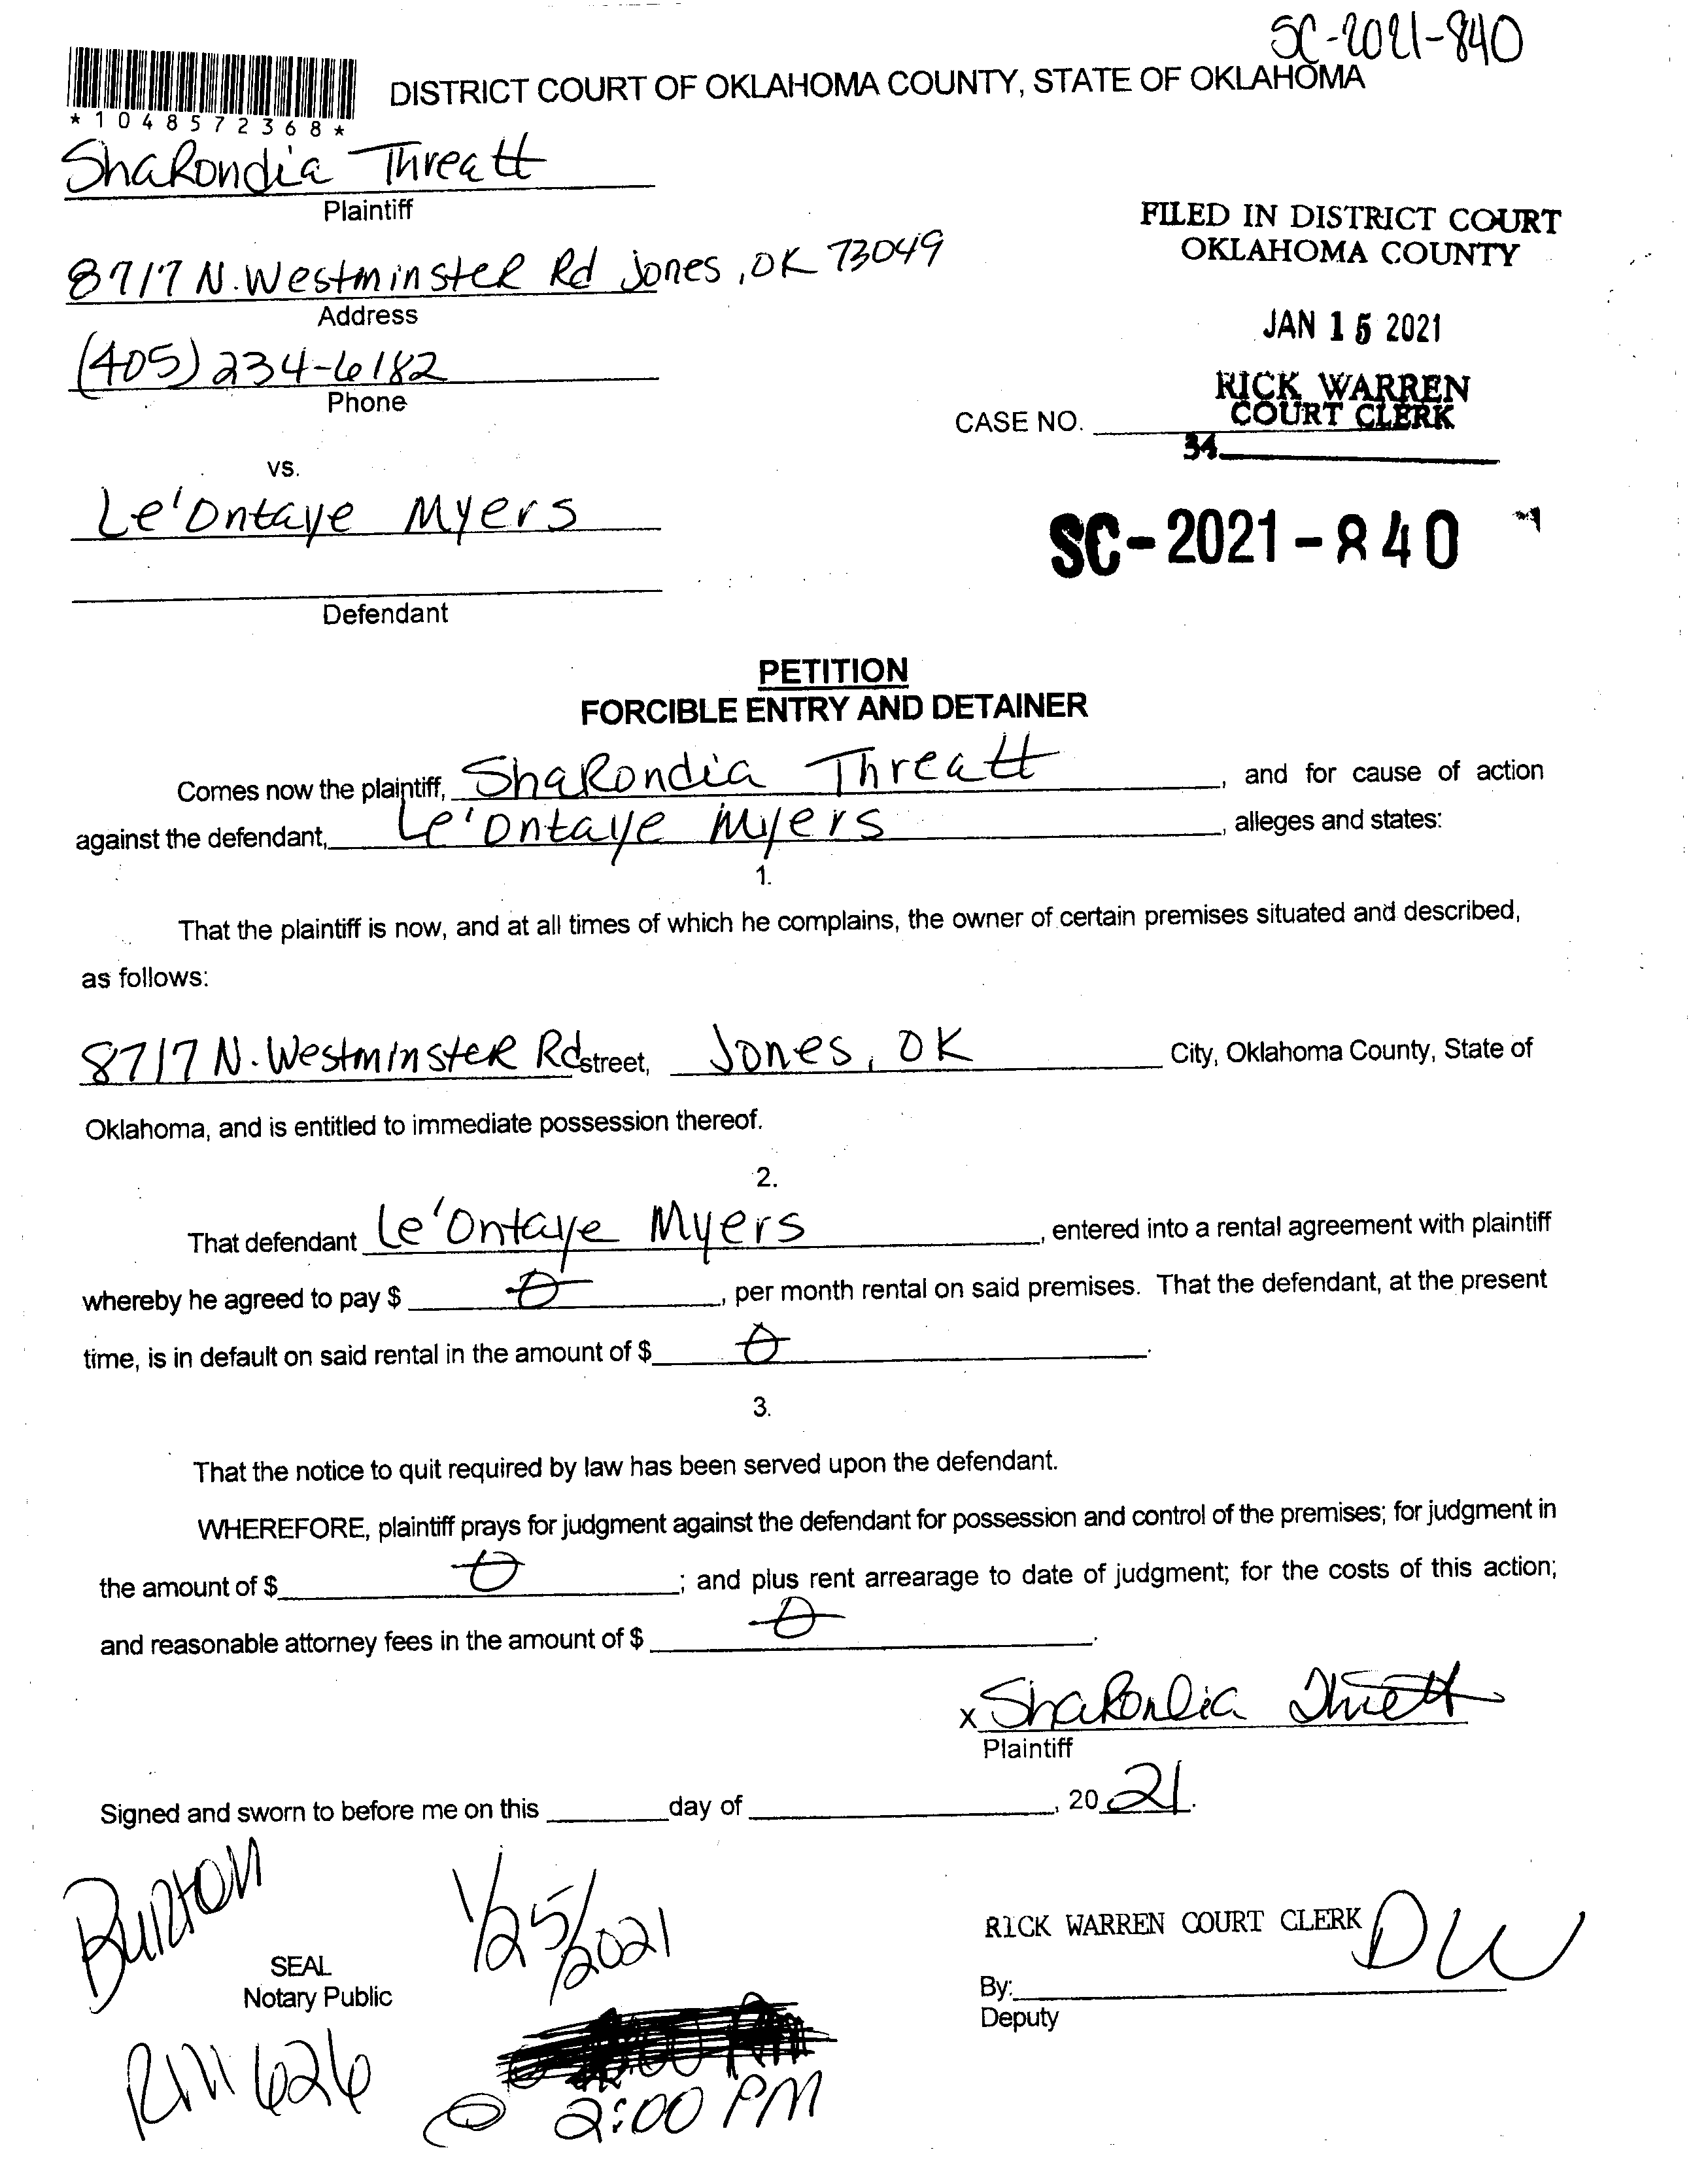 SC-2021-840
DISTRICT COURT OF OKLAHOMA COUNTY, STATE OF OKLAHOMA
*1048572368*
ShaRondia Threatt
Plaintiff
FILED IN DISTRICT COURT
OKLAHOMA COUNTY
8717 N. Westminster Rd Jones, OK 73049
Address
JAN 15 2021
(405) 234-6182
Phone
RICK WARREN
COURT CLERK
CASE NO.
34
vs.
Le'Ontaye Myers
SC-2021-840
Defendant
PETITION
FORCIBLE ENTRY AND DETAINER
Comes now the plaintiff, ShaRondia Threatt, and for cause of action
against the defendant, Le'Ontaye Myers, alleges and states:
1.
That the plaintiff is now, and at all times of which he complains, the owner of certain premises situated and described,
as follows:
8717 N. Westminster Rd street, Jones, OK City, Oklahoma County, State of
Oklahoma, and is entitled to immediate possession thereof.
2.
That defendant Le'Ontaye Myers, entered into a rental agreement with plaintiff
whereby he agreed to pay $ 0, per month rental on said premises. That the defendant, at the present
time, is in default on said rental in the amount of $ 0.
3.
That the notice to quit required by law has been served upon the defendant.
WHEREFORE, plaintiff prays for judgment against the defendant for possession and control of the premises; for judgment in
the amount of $ 0; and plus rent arrearage to date of judgment; for the costs of this action;
and reasonable attorney fees in the amount of $ 0.
x ShaRondia Threatt
Plaintiff
Signed and sworn to before me on this ______ day of ______, 2021.
Burton
1/25/2021
RICK WARREN COURT CLERK
SEAL
Notary Public
By: DW
Deputy
RM 626
@ 2:00 PM